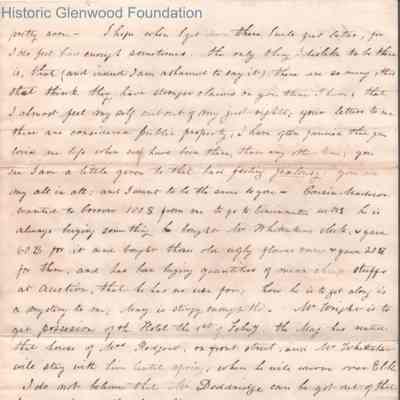 Historic Glenwood Foundation
pretty soon - I hope when I get there Uncle just later, for
I do feel bad enough sometimes. the only thing I dislike to be there
is, that (and indeed I am ashamed to say it) there are so many, there
that think they have stronger claims on you than I have, that
I almost feel my self cut out of my just rights, your letters to me
there are considered public property, I have often fancied that you
loved me less when we have been there, than any other time, you
see I am a little given to that bad feeling jealousy you are
my all in all; and I want to be the same to you - Cousin Madison
wanted to borrow 100$ from me to go to Cincinnati with he is
always buying something he bought Mr Whitakers clock, & gave
60$ for it and bought those old ugly glover ones & gave 20$
for them, and has been buying quantities of mean cheap stuffs
at auction, that he has no use for, how he is to get along is
a mystery to me, May is stingy enough tho. - Mr Wright is to
get possession of the Hotel the 1st of Feby, the May has rented
the house of Mrs Rodgers, on front street, and Mr Whitaker
will stay with him until april, when he will move over Elk
I do not believe that Mr Doddridge can be got out of the